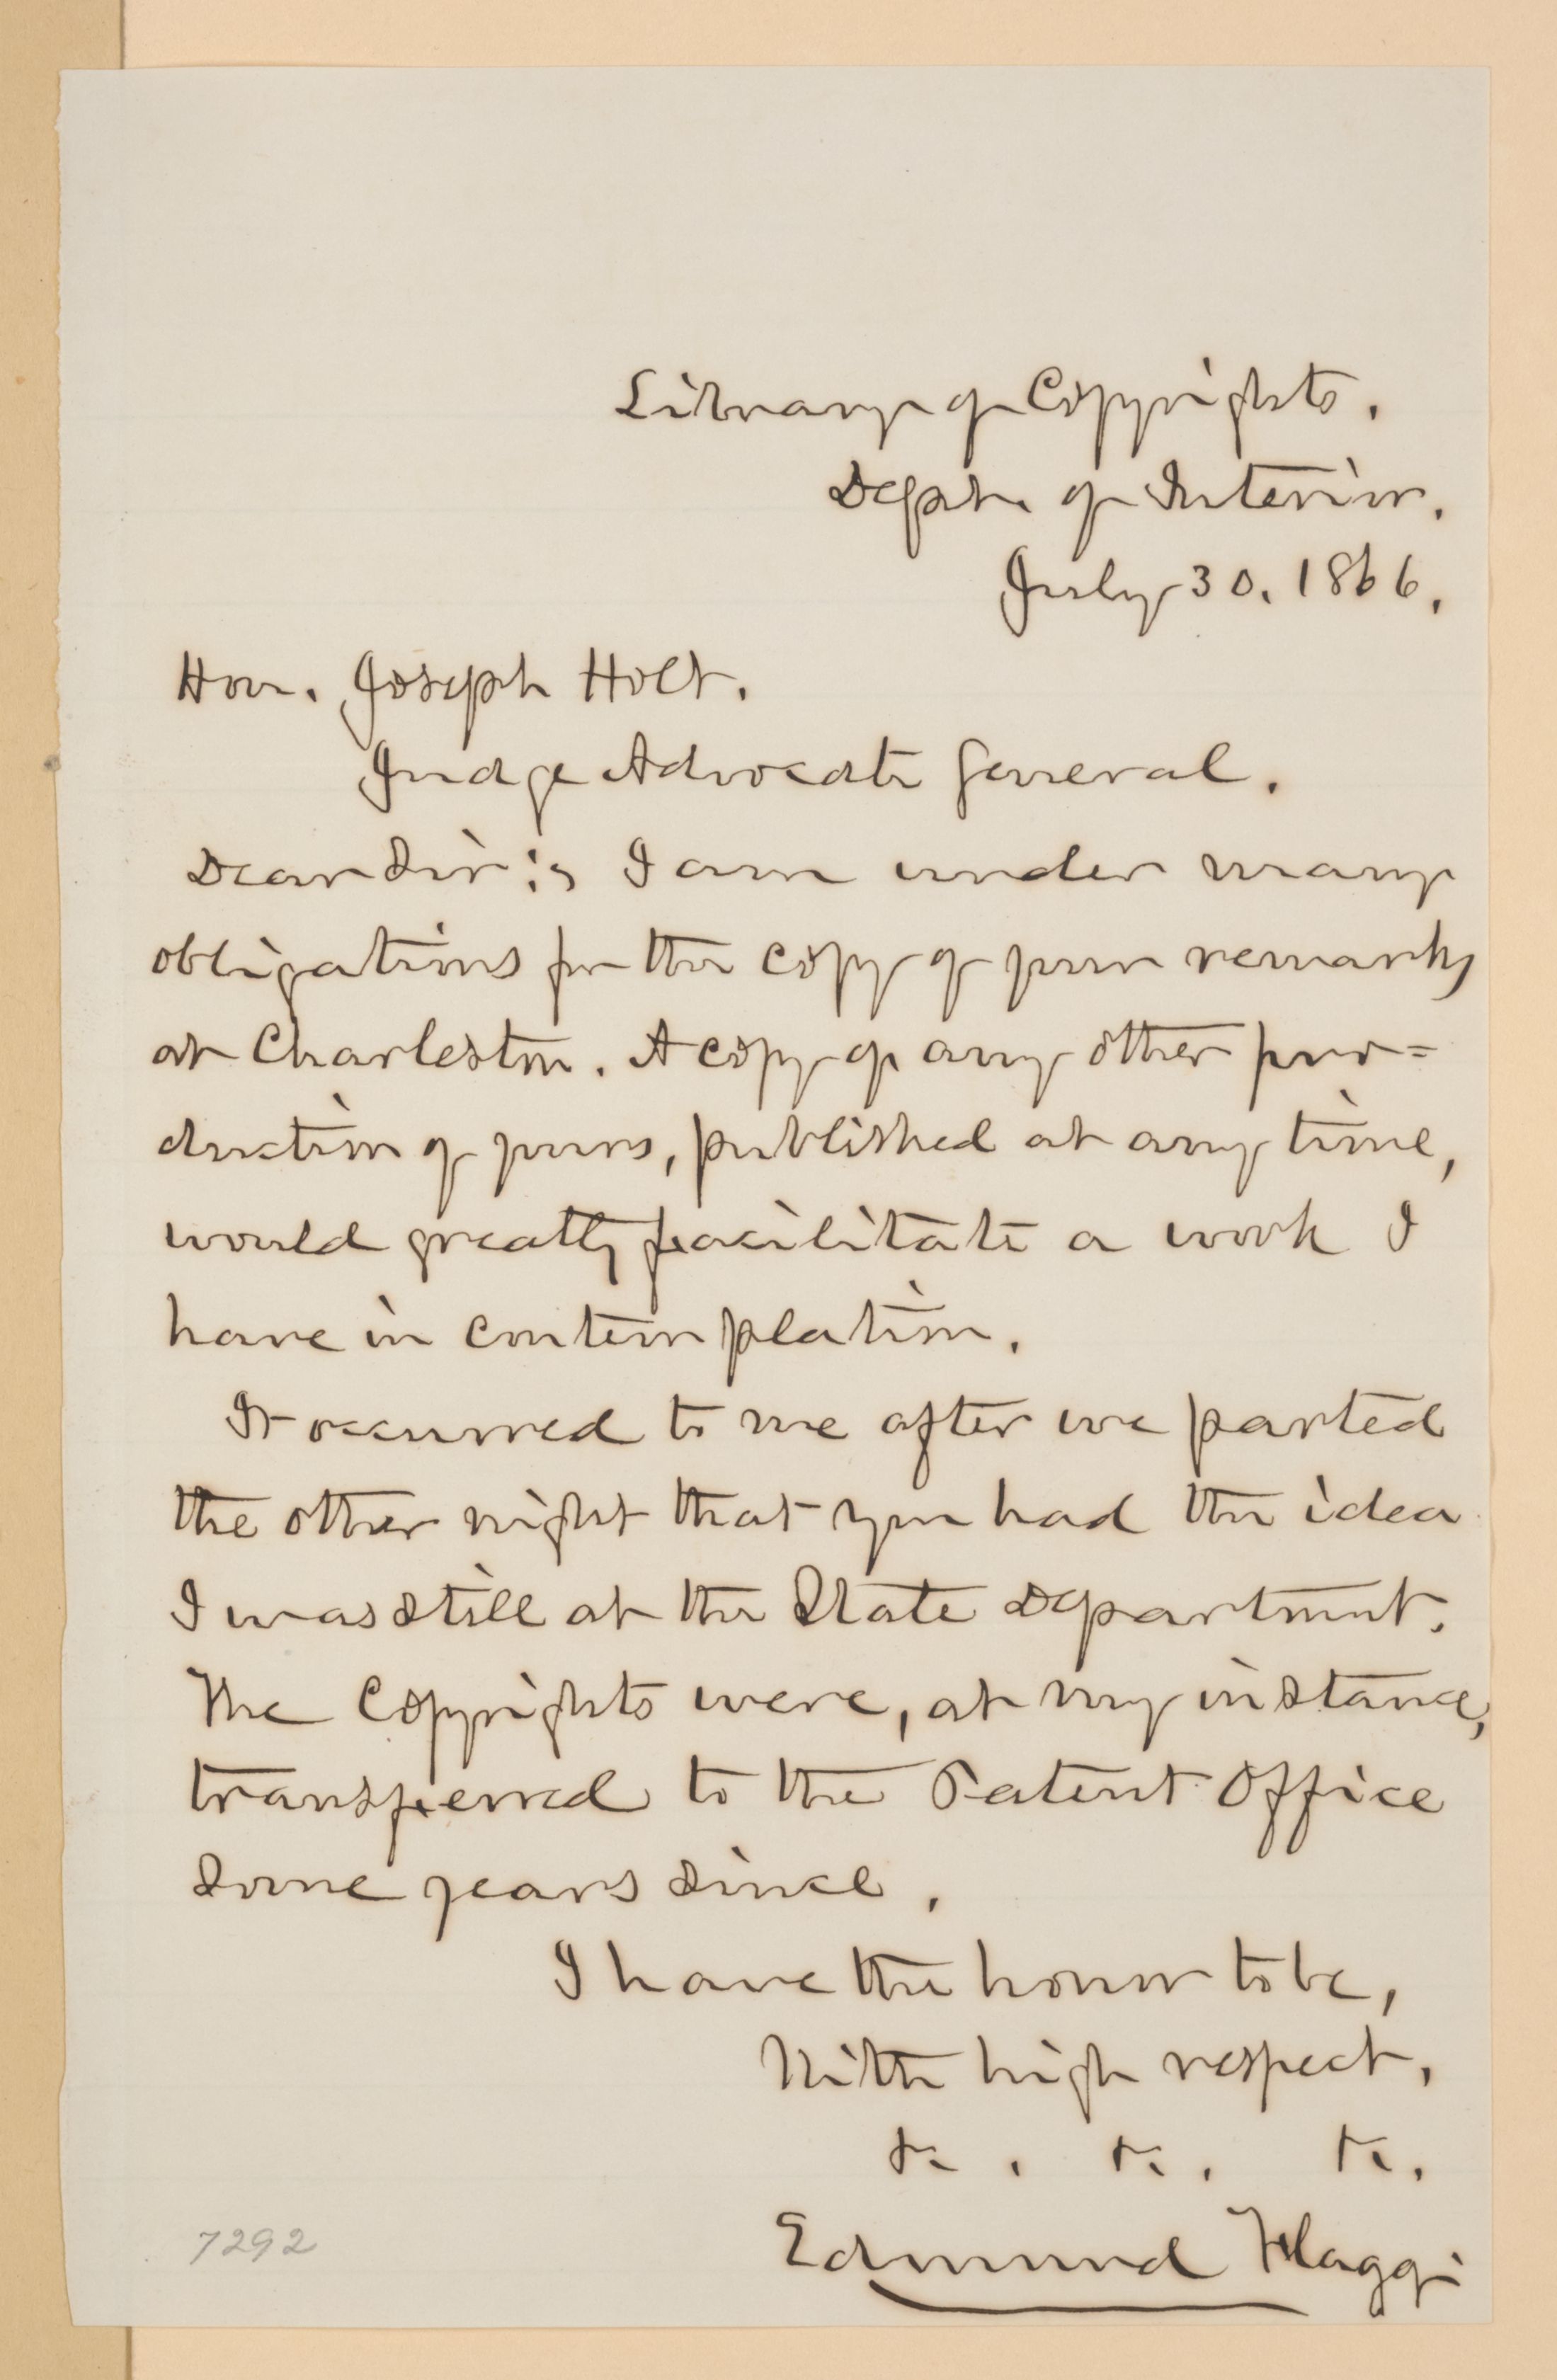 Library of Copyrights.
Depart. of Interior.
July 30. 1866.
Hon. Joseph Holt.
Judge Advocate General.
Dear Sir: I am under many
obligations for the copy of your remarks
at Charleston. A copy of any other pro=
duction of yours, published at any time,
would greatly facilitate a work I
have in contemplation.
It occurred to me after we parted
the other night that you had the idea
I was still at the State Department.
The Copyrights were, at my instance,
transferred to the Patent Office
some years since.
I have the honor to be,
With high respect,
&c. &c. &c.
Edmund Flagg
7292